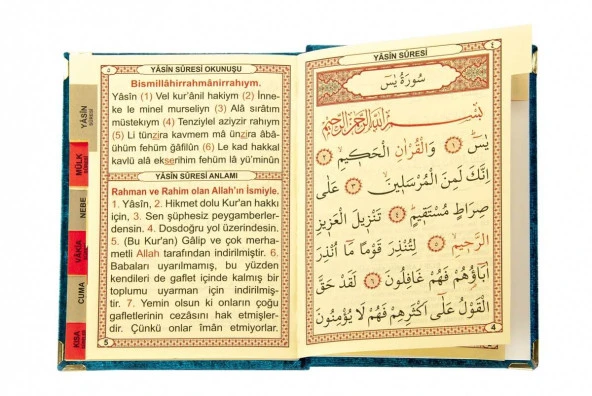 YÂSİN SÛRESİ OKUNUŞU
Bismillâhirrahmânirrahıym.
Yâsîn (1) Vel kur'ânil hakiym (2) İnne-
ke le minel murseliyn (3) Alâ sırâtım
müstekıym (4) Tenziylel aziyzir rahıym
(5) Li tünzira kavmem mâ ünzira âbâ-
ühüm fehüm ğâfilûn (6) Le kad hakkal
kavlü alâ ekserihim fehüm lâ yü'minûn
YÂSİN SÛRESİ ANLAMI
Rahman ve Rahim olan Allah'ın İsmiyle.
1. Yâsîn, 2. Hikmet dolu Kur'an hakkı
için, 3. Sen şüphesiz peygamberler-
densin. 4. Dosdoğru yol üzerindesin.
5. (Bu Kur'an) Gâlip ve çok merha-
metli Allah tarafından indirilmiştir. 6.
Babaları uyarılmamış, bu yüzden
kendileri de gaflet içinde kalmış bir
toplumu uyarman için indirilmiş-
tir. 7. Yemin olsun ki onların çoğu
gafletlerinin cezasını hak etmişler-
dir. Çünkü onlar îmân etmiyorlar.
5
YÂSİN
SÛRESİ
MÜLK
SÛRESİ
NEBE
VÂKIA
CUMA
KISA
YÂSİN SÛRESİ
سُورَةُ يٰسٓ
بِسْمِ اللّٰهِ الرَّحْمٰنِ الرَّحِيمِ
يٰسٓ ﴿١﴾ وَالْقُرْاٰنِ الْحَكِيمِ ﴿٢﴾
اِنَّكَ لَمِنَ الْمُرْسَلِينَ ﴿٣﴾ عَلٰى
صِرَاطٍ مُسْتَقِيمٍ ﴿٤﴾ تَنْزِيلَ الْعَزِيزِ
الرَّحِيمِ ﴿٥﴾ لِتُنْذِرَ قَوْمًا مَٓا اُنْذِرَ
اٰبَٓاؤُهُمْ فَهُمْ غَافِلُونَ ﴿٦﴾ لَقَدْ حَقَّ
الْقَوْلُ عَلٰٓى اَكْثَرِهِمْ فَهُمْ لَا يُؤْمِنُونَ
4